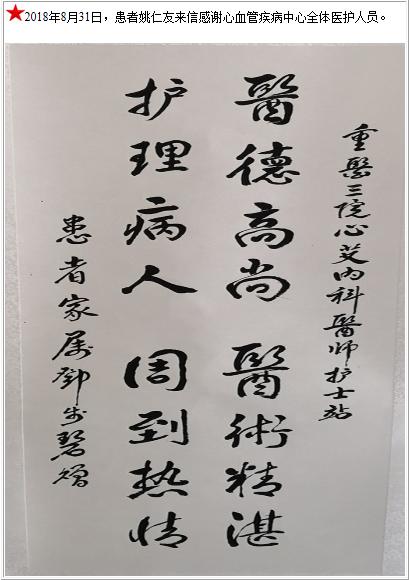 2018年8月31日，患者姚仁友来信感谢心血管疾病中心全体医护人员。
重醫三院心内科醫师护士站
醫德高尚 醫術精湛
护理病人 周到热情
患者家属鄧碧赠